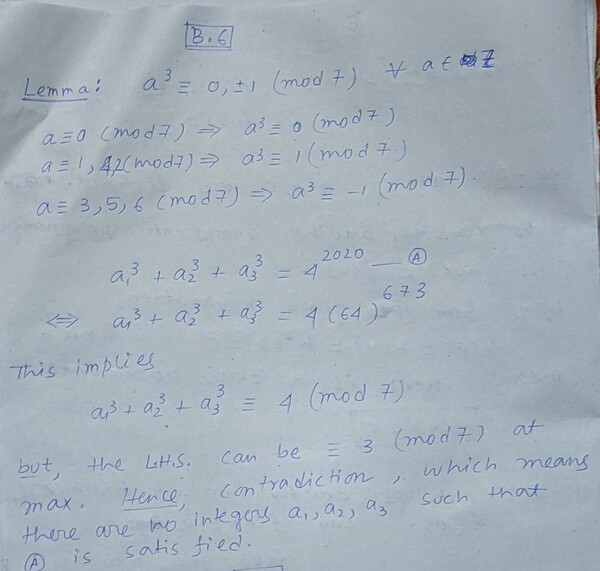 B.6
Lemma: a³ ≡ 0, ±1 (mod 7) ∀ a ∈ Z
a ≡ 0 (mod 7) ⇒ a³ ≡ 0 (mod 7)
a ≡ 1, 4, 2 (mod 7) ⇒ a³ ≡ 1 (mod 7)
a ≡ 3, 5, 6 (mod 7) ⇒ a³ ≡ -1 (mod 7).
a₁³ + a₂³ + a₃³ = 4²⁰²⁰ — Ⓐ
⇔ a₁³ + a₂³ + a₃³ = 4(64)⁶⁷³
This implies
a₁³ + a₂³ + a₃³ ≡ 4 (mod 7)
but, the L.H.S. can be ≡ 3 (mod 7) at
max. Hence, contradiction, which means
there are no integers a₁, a₂, a₃ such that
Ⓐ is satisfied.